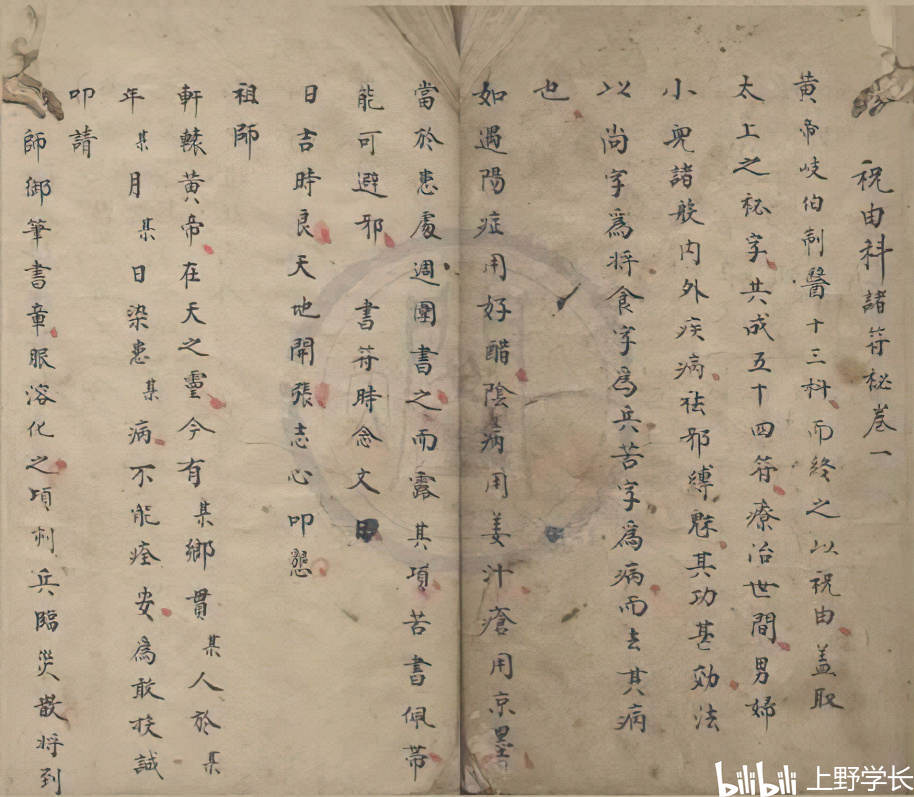 祝由科諸符秘卷一
黃帝岐伯制醫十三科而終之以祝由蓋取
太上之秘字共成五十四符療治世間男婦
小兒諸般內外疾病祛邪縛魅其功甚効法
以尚字為将食字為兵苦字為病而去其病
也
如遇陽症用好醋陰病用姜汁瘡用京墨
當於患處週圍書之而露其項苦書佩帯
能可避邪 書符時念文曰
日吉時良天地開張志心叩懇
祖師
軒轅黃帝在天之靈今有某鄉貫某人於某
年某月某日染患某病不能痊安為敢投誠
叩請
師御筆書章服溶化之頃刺兵臨災散将到
bilibili 上野学长